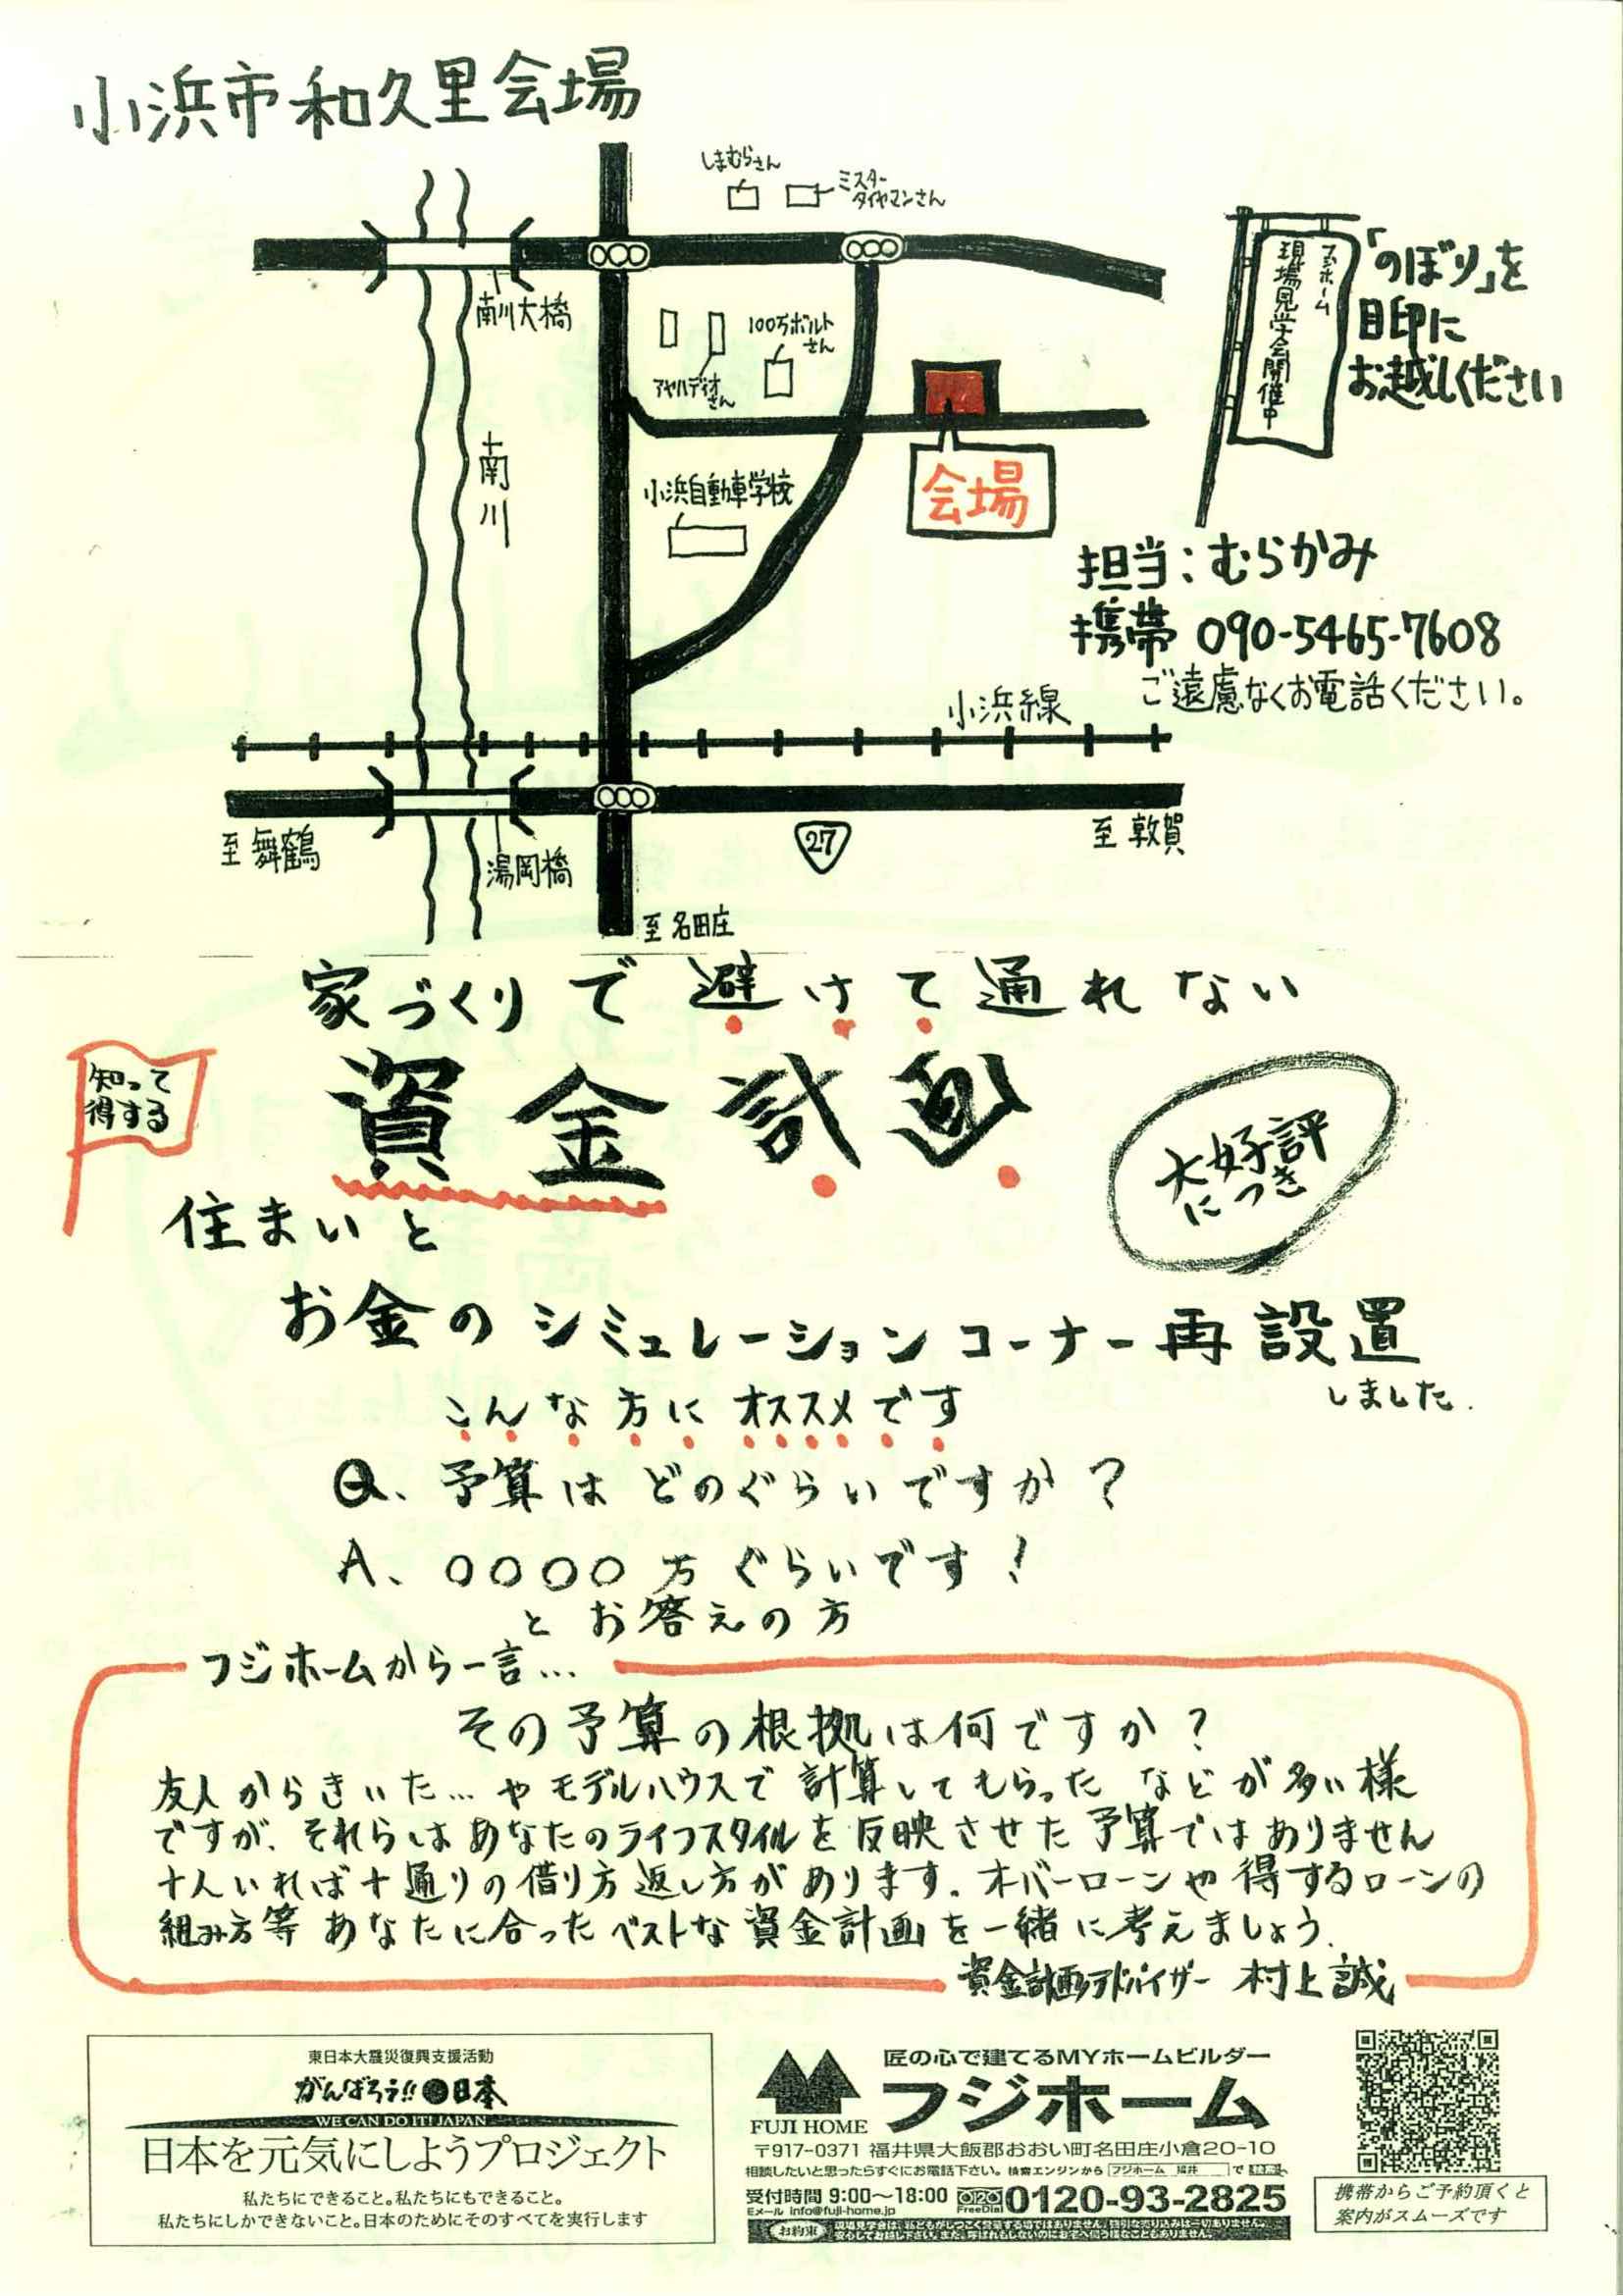 小浜市和久里会場
しまむらさん
ミスター
タイヤマンさん
南川大橋
100万ボルト
さん
アヤハディオ
さん
フジホーム
現場見学会開催中
「のぼり」を
目印に
お越しください
南川
小浜自動車学校
会場
担当:むらかみ
携帯 090-5465-7608
ご遠慮なくお電話ください。
小浜線
至 舞鶴
湯岡橋
27
至 敦賀
至 名田庄
家づくりで避けて通れない
知って
得する
資金計画
大好評
につき
住まいと
お金のシミュレーションコーナー再設置
しました.
こんな方にオススメです
Q、予算はどのぐらいですか?
A、〇〇〇〇万ぐらいです!
とお答えの方
フジホームから一言…
その予算の根拠は何ですか?
友人からきいた…やモデルハウスで計算してもらったなどが多い様
ですが、それらはあなたのライフスタイルを反映させた予算ではありません
十人いれば十通りの借り方返し方があります。オバーローンや得するローンの
組み方等あなたに合ったベストな資金計画を一緒に考えましょう.
資金計画アドバイザー 村上誠
東日本大震災復興支援活動
がんばろう!!●日本
WE CAN DO IT! JAPAN
日本を元気にしようプロジェクト
私たちにできること。私たちにもできること。
私たちにしかできないこと。日本のためにそのすべてを実行します
匠の心で建てるMYホームビルダー
フジホーム
FUJI HOME
〒917-0371 福井県大飯郡おおい町名田庄小倉20-10
相談したいと思ったらすぐにお電話下さい。検索エンジンから フジホーム 福井 で 検索
受付時間 9:00〜18:00 FreeDial 0120-93-2825
Eメール info@fuji-home.jp
お約束 現場見学会は、私どもがしつこく営業する場ではありません。強引な売り込みは一切ありません。
安心してお越し下さい。また、呼ばれもしないのにお宅へ伺う様なこともありません。
携帯からご予約頂くと
案内がスムーズです